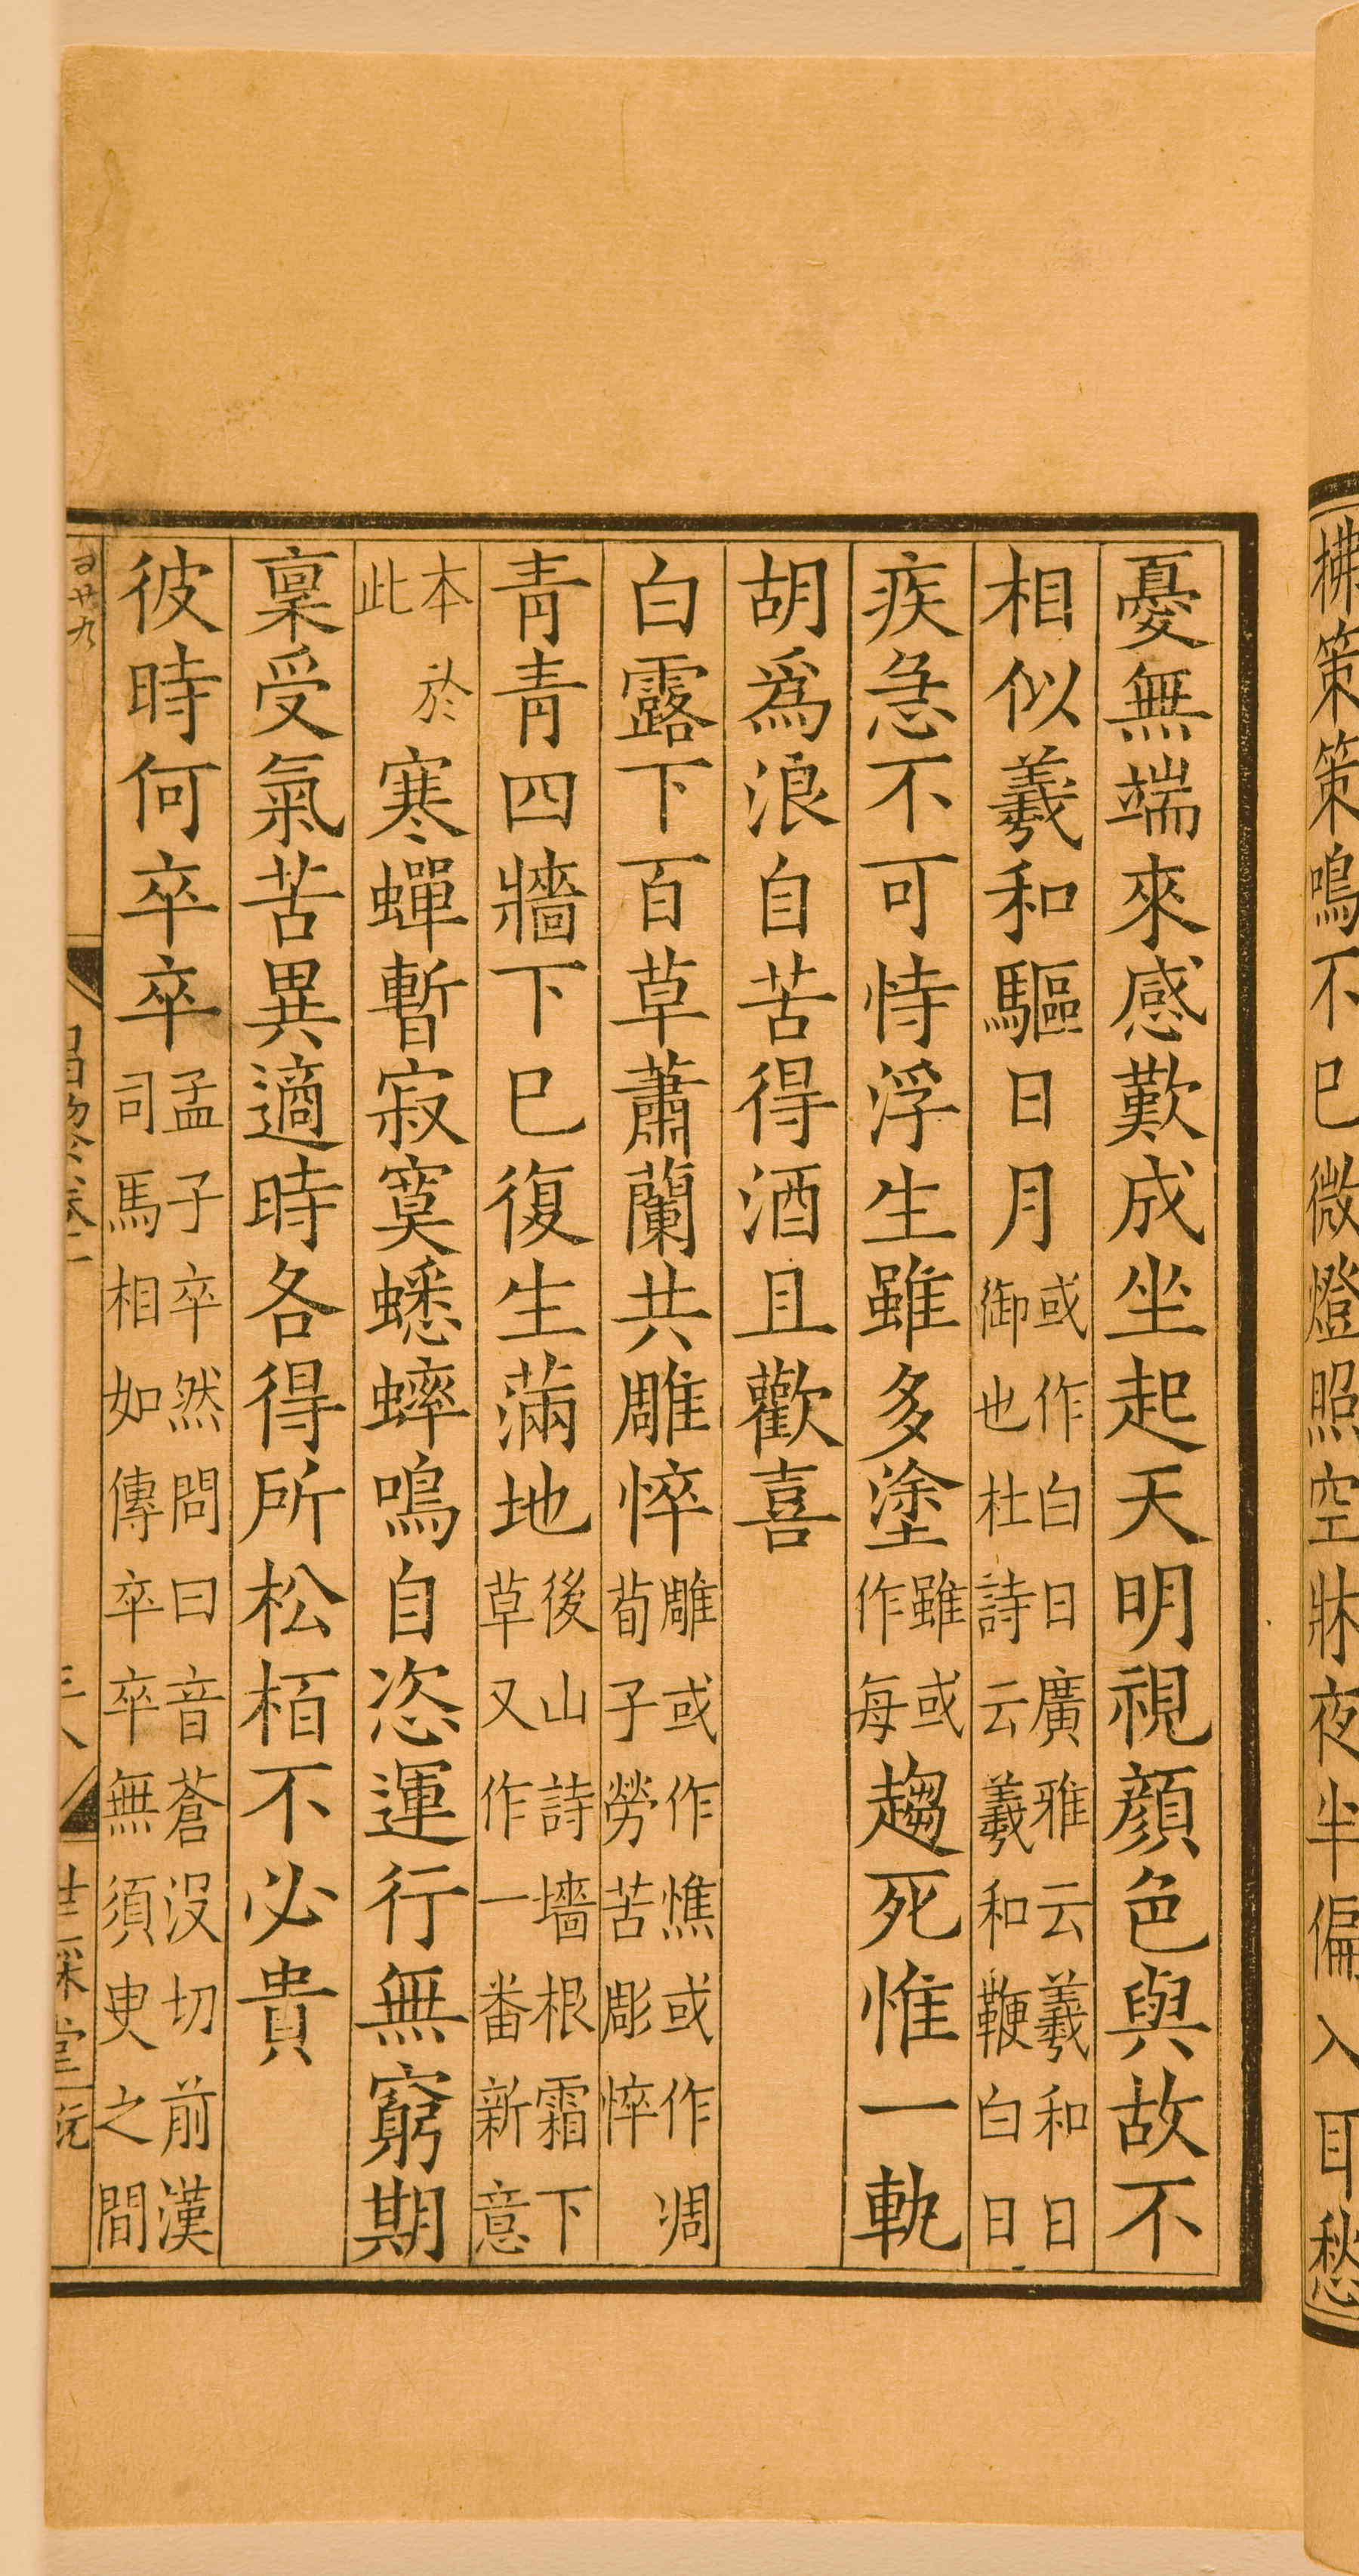 拂策策鳴不已微燈照空牀夜半偏入耳愁
憂無端來感歎成坐起天明視顏色與故不
相似羲和驅日月或作白日廣雅云羲和日御也杜詩云羲和鞭白日
疾急不可恃浮生雖多塗雖或作每趨死惟一軌
胡爲浪自苦得酒且歡喜
白露下百草蕭蘭共雕悴雕或作憔或作凋荀子勞苦彫悴
青青四牆下已復生滿地後山詩墻根霜下草又作一番新意
本於此寒蟬暫寂寞蟋蟀鳴自恣運行無窮期
稟受氣苦異適時各得所松栢不必貴
彼時何卒卒孟子卒然問曰音蒼沒切前漢司馬相如傳卒卒無須臾之間